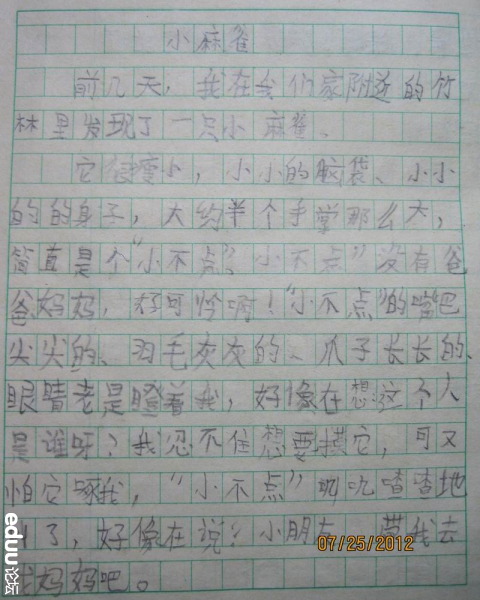 小麻雀
前几天，我在我们家附近的竹
林里发现了一只小麻雀、
它很瘦小，小小的脑袋、小小
的的身子，大约半个手掌那么大，
简直是个“小不点”、“小不点”没有爸
爸妈妈，好可怜啊！“小不点”的嘴巴
尖尖的、羽毛灰灰的、爪子长长的、
眼睛老是瞪着我，好像在想：这个人
是谁呀？我忍不住想要摸它，可又
怕它啄我，“小不点”叽叽喳喳地
了，好像在说：小朋友 带我去
妈妈吧。
07/25/2012
eduu论坛